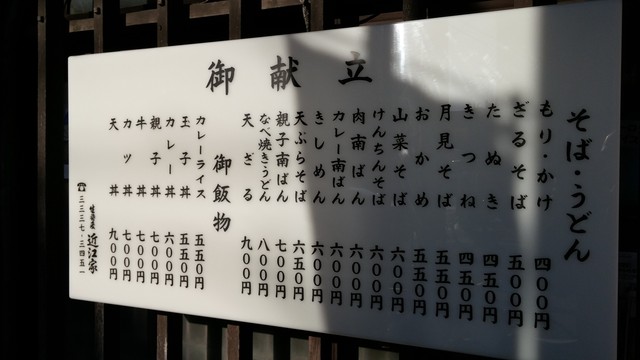 御献立
そば・うどん
もり・かけ 四〇〇円
ざるそば 五〇〇円
たぬき 四五〇円
きつね 四五〇円
月見そば 五五〇円
おかめ 五五〇円
山菜そば 六五〇円
けんちんそば 六〇〇円
肉南ばん 六〇〇円
カレー南ばん 六〇〇円
きしめん 六〇〇円
天ぷらそば 六五〇円
親子南ばん 七〇〇円
なべ焼きうどん 八〇〇円
天ざる 九〇〇円
御飯物
カレーライス 五五〇円
玉子丼 五五〇円
カレー丼 六〇〇円
親子丼 七〇〇円
牛丼 七〇〇円
カツ丼 七〇〇円
天丼 九〇〇円
生蕎麦 近江家
☎三二三七・三四五一